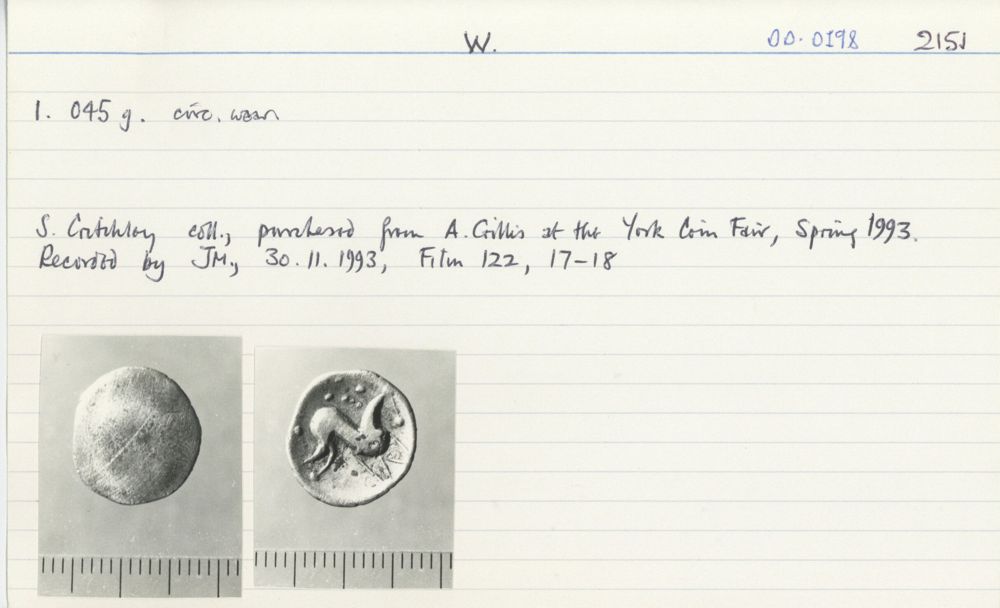 W. DD·0198 2151
1.045 g. circ. wear
S. Critchley coll., purchased from A. Gillis at the York Coin Fair, Spring 1993.
Recorded by JM., 30.11.1993, Film 122, 17-18